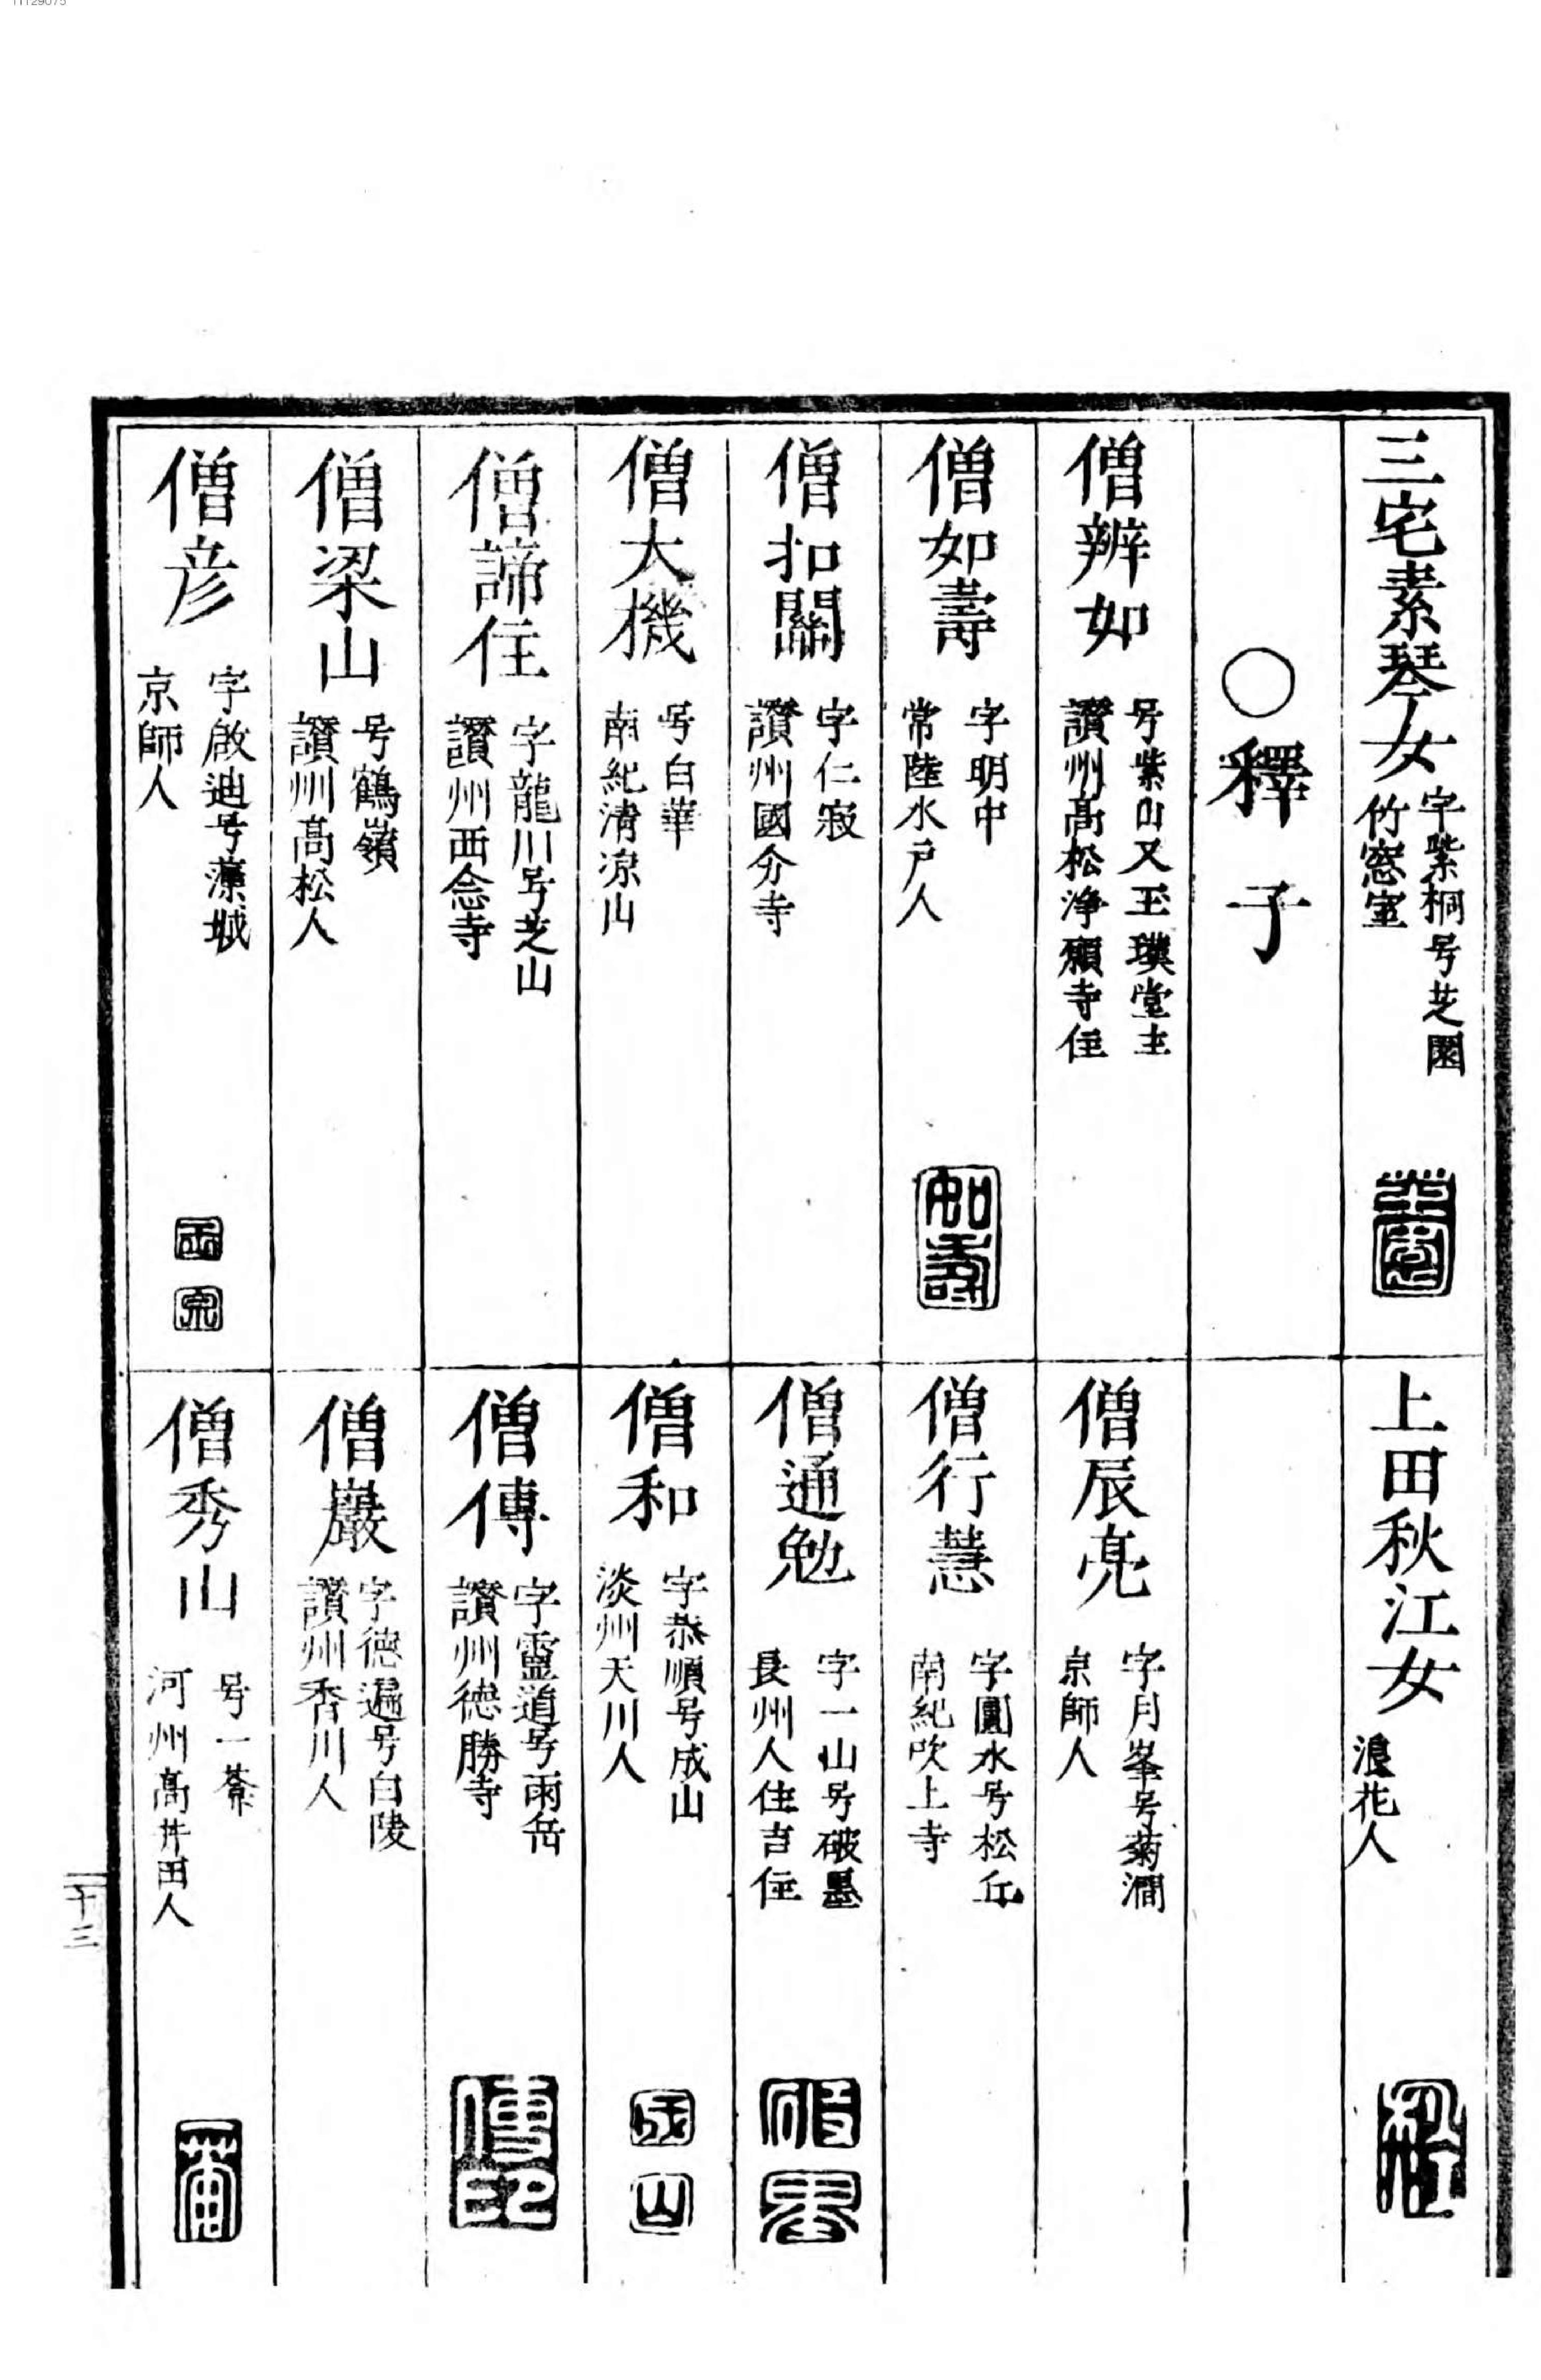 三宅素琴女
字紫桐号芝園
竹窓室
上田秋江女
浪花人
〇釋子
僧辨如
号紫山又玉璞堂主
讃州高松浄願寺住
僧辰亮
字月峯号菊澗
京師人
僧如壽
字明中
常陸水戸人
如壽
僧行慧
字圓水号松丘
南紀吹上寺
僧扣關
字仁寂
讃州國分寺
僧通勉
字一山号破墨
長州人住吉住
破墨
僧大機
号白華
南紀清涼山
僧和
字恭順号成山
淡州天川人
成山
僧諦住
字龍川号芝山
讃州西念寺
僧傳
字靈道号雨岳
讃州徳勝寺
傳印
僧梁山
号鶴嶺
讃州高松人
僧巖
字徳遍号白陵
讃州香川人
僧彦
字啟迪号藻城
京師人
僧秀山
号一菴
河州高井田人
十三
11129075